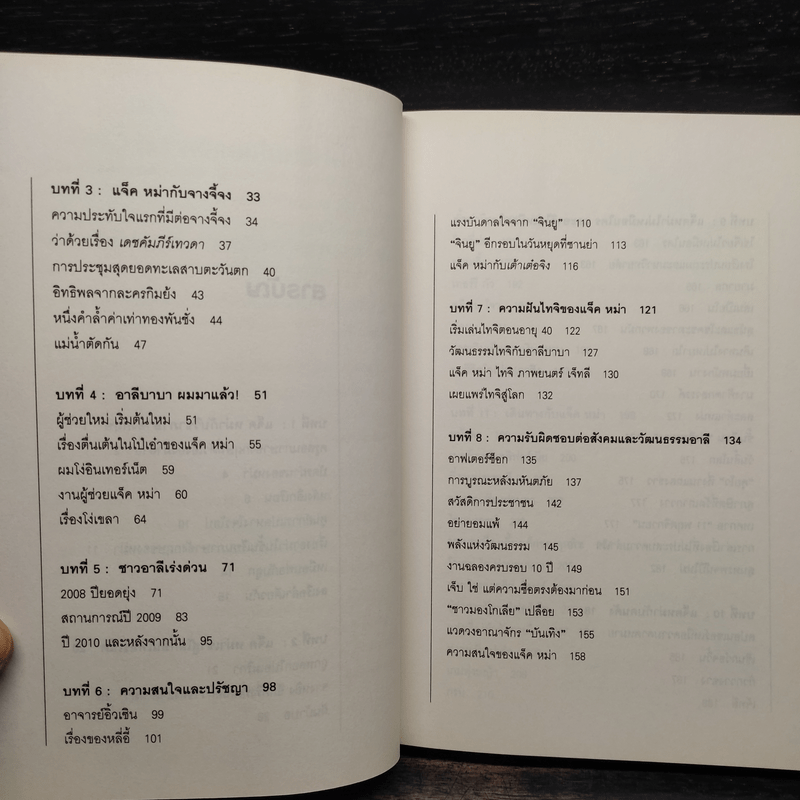 บทที่ 3 : แจ็ค หม่ากับจางจี้จง 33
ความประทับใจแรกที่มีต่อจางจี้จง 34
ว่าด้วยเรื่อง เดชคัมภีร์เทวดา 37
การประชุมสุดยอดทะเลสาบตะวันตก 40
อิทธิพลจากละครกิมย้ง 43
หนึ่งคำล้ำค่าเท่าทองพันชั่ง 44
แม่น้ำตัดกัน 47
บทที่ 4 : อาลีบาบา ผมมาแล้ว! 51
ผู้ช่วยใหม่ เริ่มต้นใหม่ 51
เรื่องตื่นเต้นในโป๋เอ๋าของแจ็ค หม่า 55
ผมโง่อินเทอร์เน็ต 59
งานผู้ช่วยแจ็ค หม่า 60
เรื่องโง่เขลา 64
บทที่ 5 : ชาวอาลีเร่งด่วน 71
2008 ปียอดยุ่ง 71
สถานการณ์ปี 2009 83
ปี 2010 และหลังจากนั้น 95
บทที่ 6 : ความสนใจและปรัชญา 98
อาจารย์อิ้วเซิน 99
เรื่องของหลี่อี้ 101
แรงบันดาลใจจาก "จินยู" 110
"จินยู" อีกรอบในวันหยุดที่ซานย่า 113
แจ็ค หม่ากับเต้าเต๋อจิง 116
บทที่ 7 : ความฝันไทจิของแจ็ค หม่า 121
เริ่มเล่นไทจิตอนอายุ 40 122
วัฒนธรรมไทจิกับอาลีบาบา 127
แจ็ค หม่า ไทจิ ภาพยนตร์ เจ็ทลี 130
เผยแพร่ไทจิสู่โลก 132
บทที่ 8 : ความรับผิดชอบต่อสังคมและวัฒนธรรมอาลี 134
อาฟเตอร์ช็อก 135
การบูรณะหลังมหันตภัย 137
สวัสดิการประชาชน 142
อย่ายอมแพ้ 144
พลังแห่งวัฒนธรรม 145
งานฉลองครบรอบ 10 ปี 149
เจ็บ ใช่ แต่ความซื่อตรงต้องมาก่อน 151
"ชาวมองโกเลีย" เปลือย 153
แวดวงอาณาจักร "บันเทิง" 155
ความสนใจของแจ็ค หม่า 158